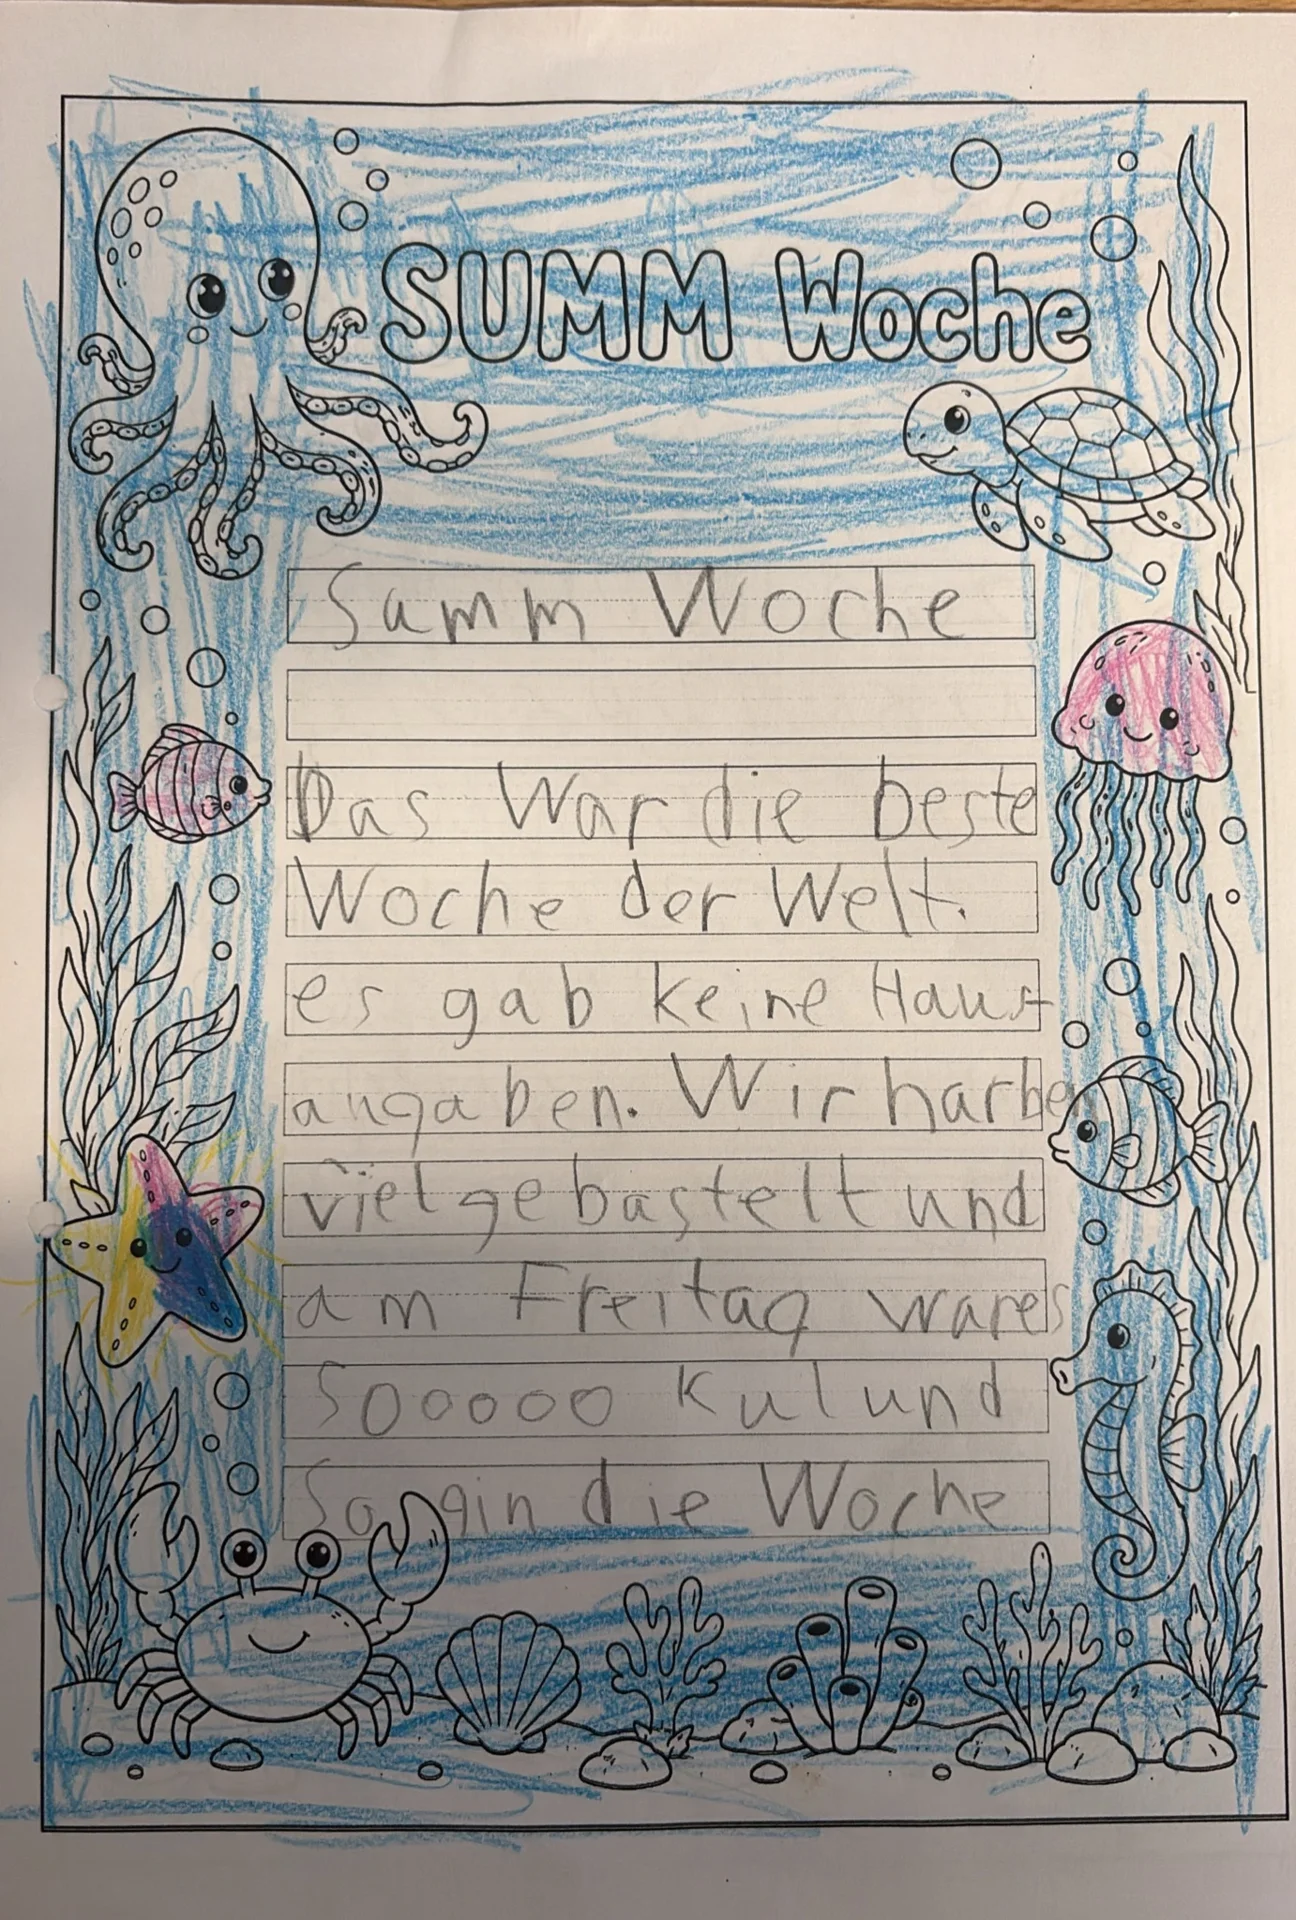 SUMM Woche
Summ Woche
Das War die beste
Woche der Welt.
es gab keine Haus-
angaben. Wir harben
viel gebastelt und
am Freitag war es
Sooooo Kul und
So gin die Woche